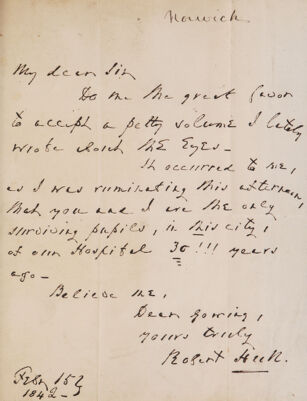 Norwich
My dear Sir
Do me the great favor
to accept a petty volume I lately
wrote about the Eyes –
It occurred to me,
as I was ruminating this afternoon,
that you and I are the only
surviving pupils, in this city,
of our Hospital 30!!! years
ago –
Believe me,
Dear
yours truly
Robert Hull.
Feby 15
1842 –